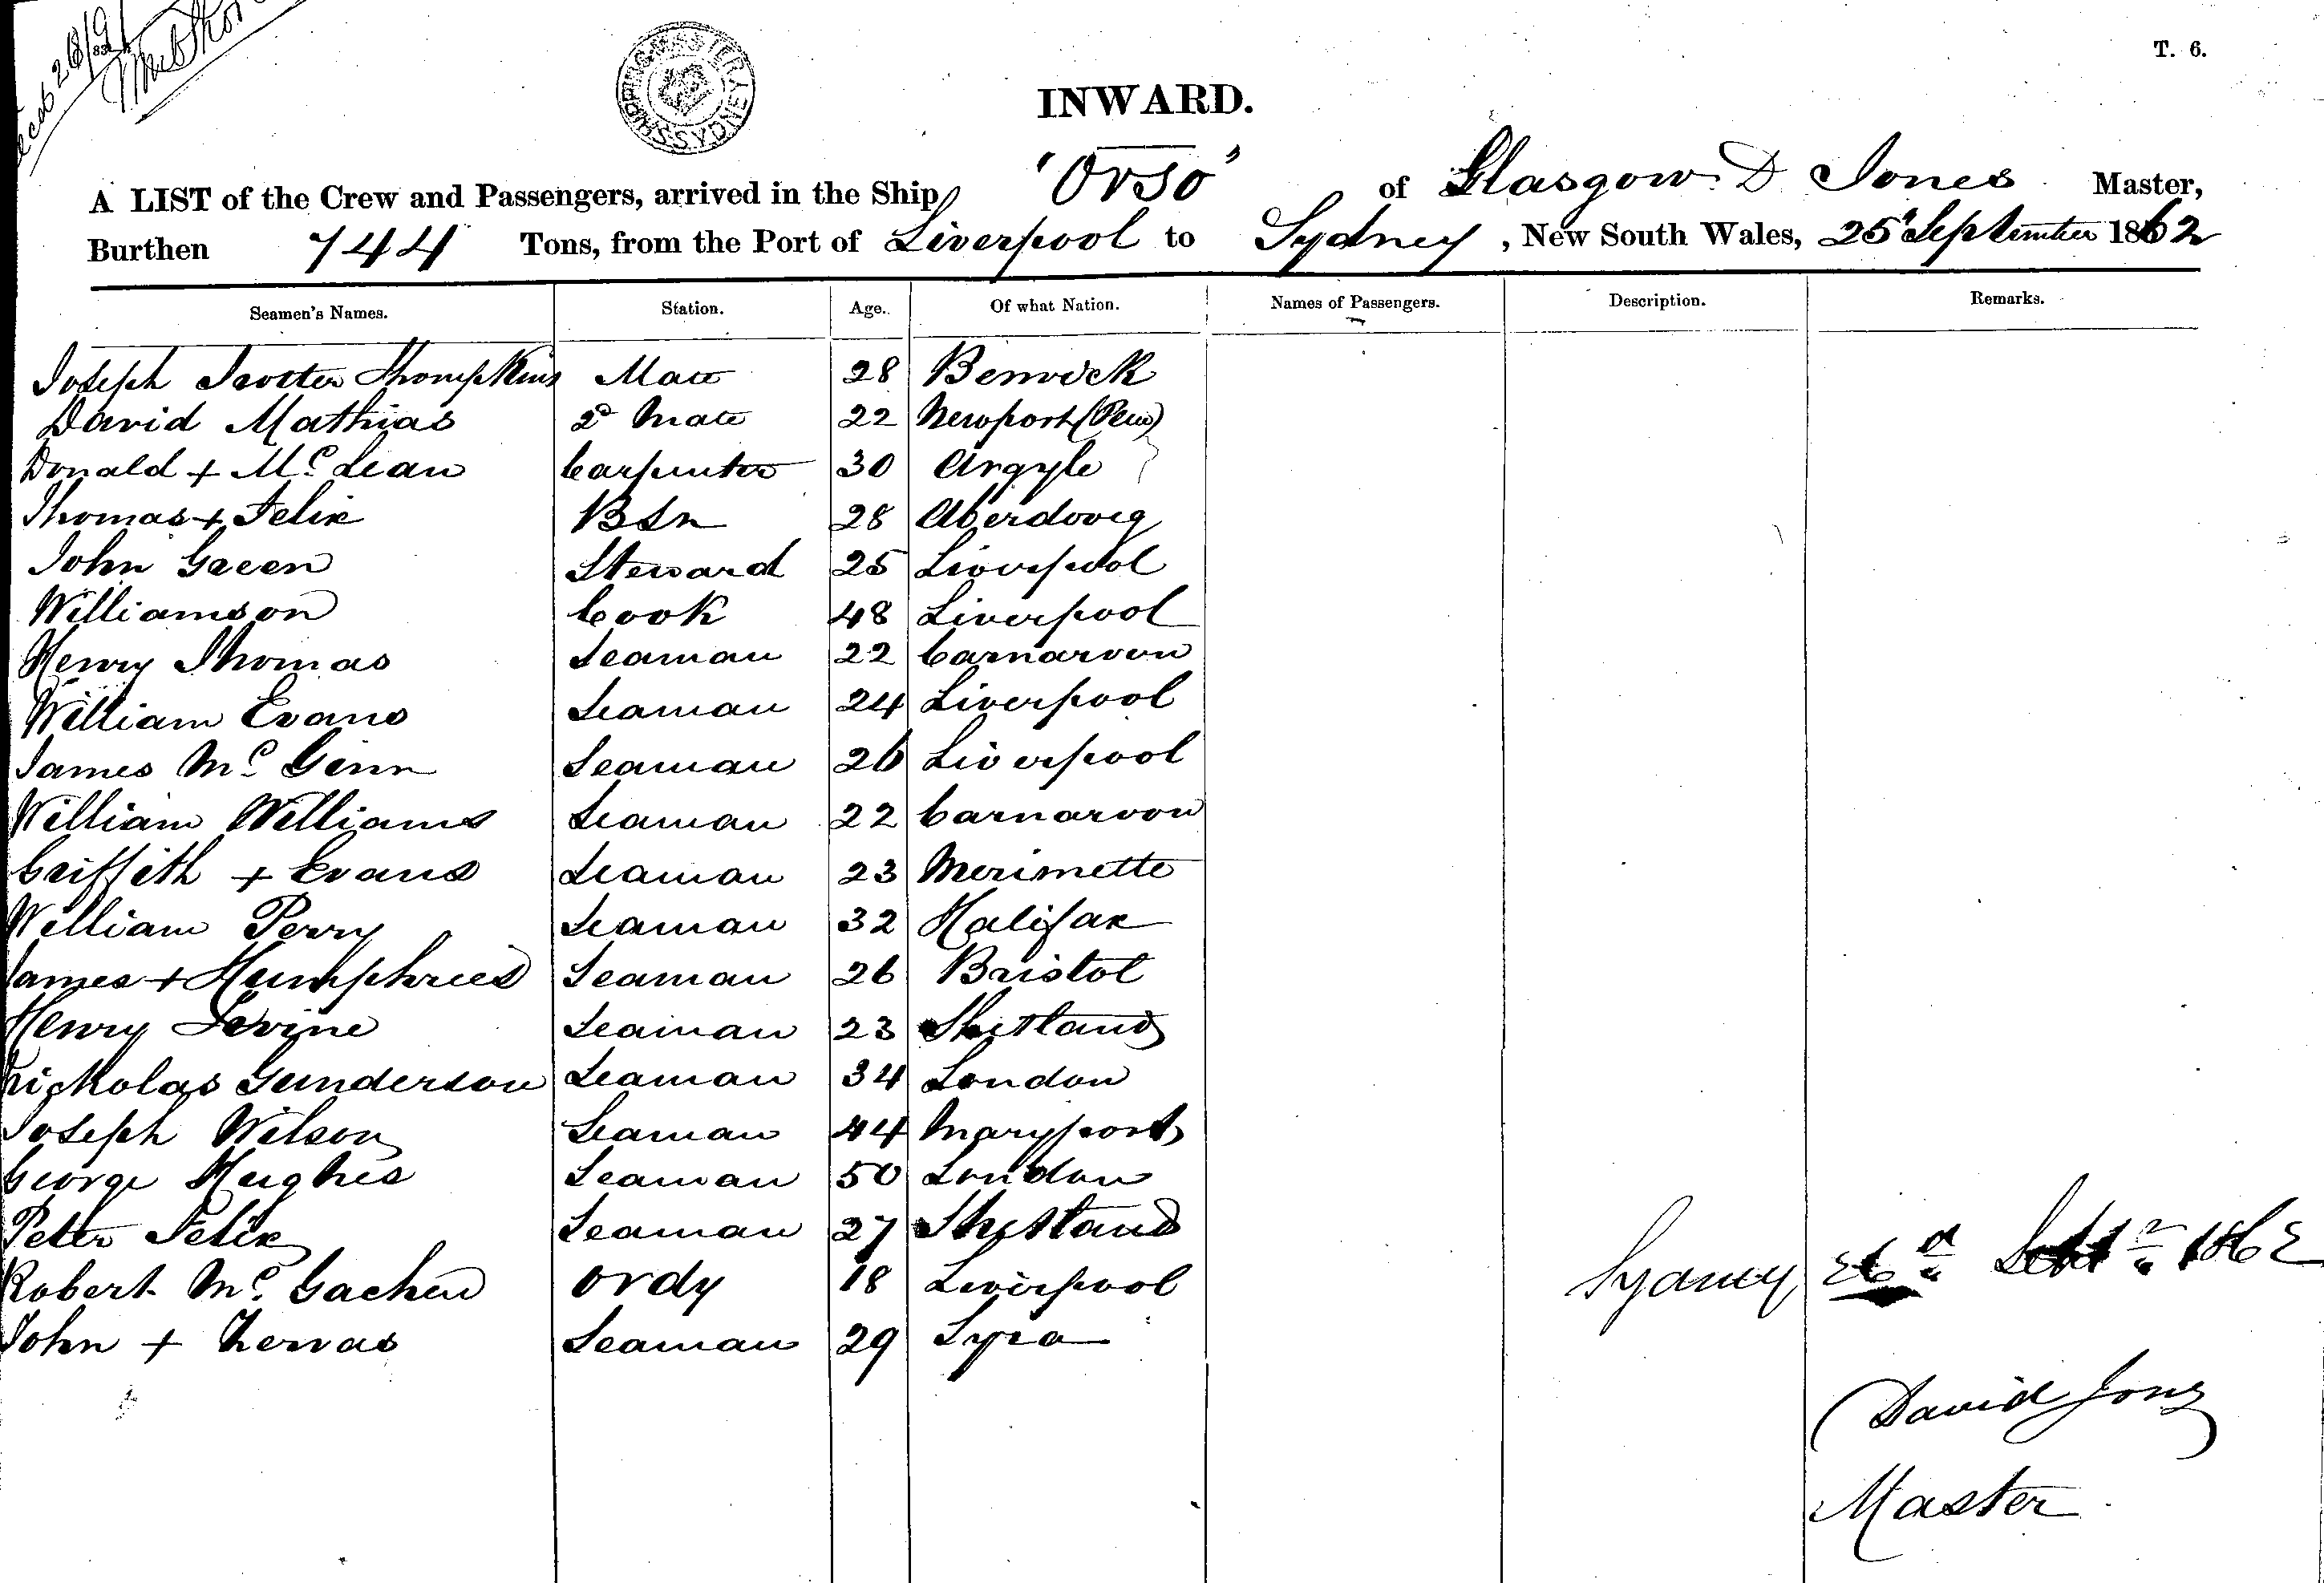 T. 6.
SHIPPING MASTER SYDNEY
INWARD.
A LIST of the Crew and Passengers, arrived in the Ship "Orso" of Glasgow D Jones Master,
Burthen 744 Tons, from the Port of Liverpool to Sydney, New South Wales, 25 September 1862
Seamen's Names. Station. Age. Of what Nation. Names of Passengers. Description. Remarks.
Joseph Trotter Thompkins Mate 28 Berwick
David Mathias 2d Mate 22 Newport (Pem)
Donald + Mc Lean Carpenter 30 Argyle
Thomas + Felix BSn 28 Aberdovey
John Green Steward 25 Liverpool
Williamson Cook 48 Liverpool
Henry Thomas Seaman 22 Carnarvon
William Evans Seaman 24 Liverpool
James Mc Ginn Seaman 26 Liverpool
William Williams Seaman 22 Carnarvon
Griffith + Evans Seaman 23 Merimette
William Perry Seaman 32 Halifax
James + Humphries Seaman 26 Bristol
Henry Irvine Seaman 23 Shetland
Nickolas Gunderson Seaman 34 London
Joseph Wilson Seaman 44 Maryport
George Hughes Seaman 50 London
Peter Felix Seaman 27 Shetland
Robert Mc Gachen Ordy 18 Liverpool Sydney 26th Septr 1862
John + Zervas Seaman 29 Syra
David Jones
Master